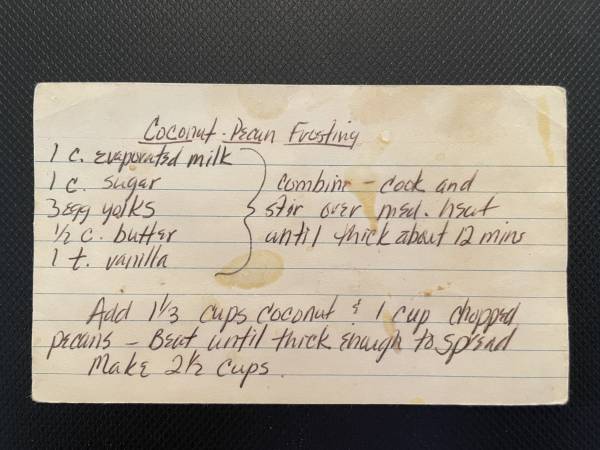 Coconut-Pecan Frosting
1 c. evaporated milk
1 c. sugar
3 egg yolks
1/2 c. butter
1 t. vanilla
Combine - cook and
stir over med. heat
until thick about 12 mins
Add 1 1/3 cups coconut & 1 cup chopped
pecans - Beat until thick enough to spread
Make 2 1/2 cups.